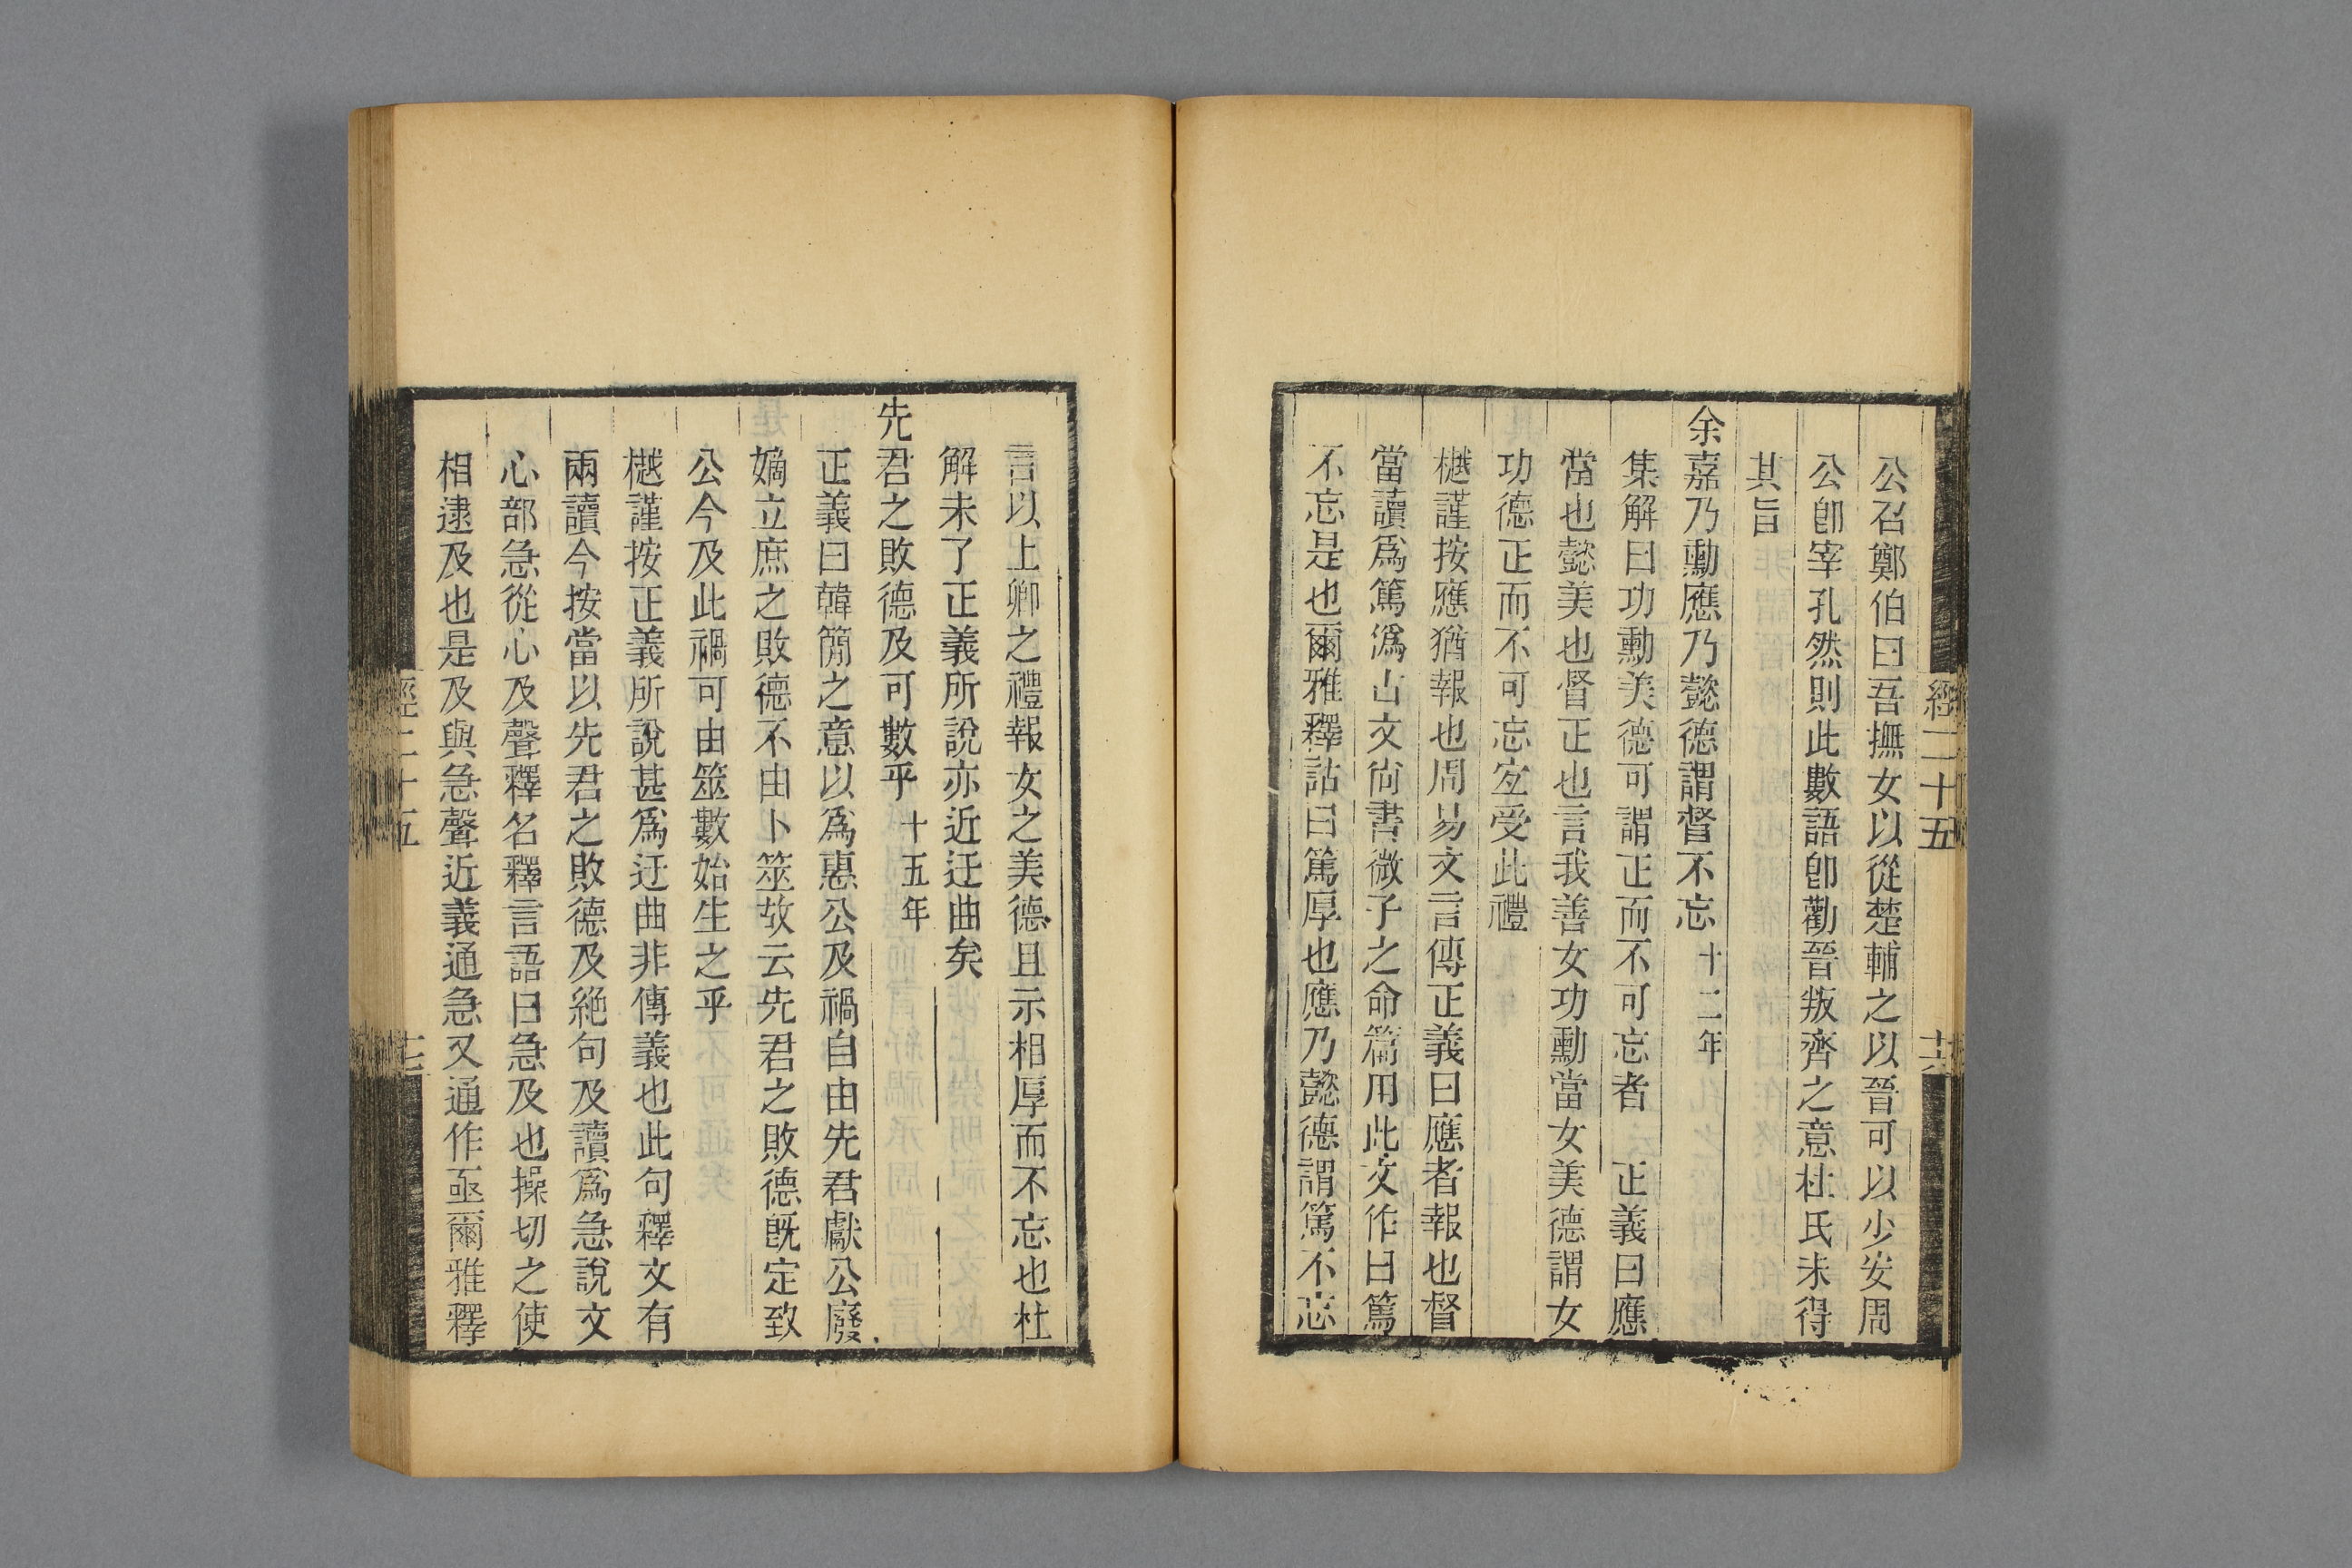 經二十五
十六
公召鄭伯曰吾撫女以從楚輔之以晉可以少安周
公卽宰孔然則此數語卽勸晉叛齊之意杜氏未得
其旨
余嘉乃勳應乃懿德謂督不忘 十二年
集解曰功勳美德可謂正而不可忘者 正義曰應
當也懿美也督正也言我善女功勳當女美德謂女
功德正而不可忘宐受此禮
樾謹按應猶報也周易文言傳正義曰應者報也督
當讀爲篤潙山文尙書微子之命篇用此文作曰篤
不忘是也爾雅釋詁曰篤厚也應乃懿德謂篤不忘
言以上卿之禮報女之美德且示相厚而不忘也杜
解未了正義所說亦近迂曲矣
先君之敗德及可數乎 十五年
正義曰韓簡之意以爲惠公及禍自由先君獻公廢
嫡立庶之敗德不由卜筮故云先君之敗德旣定致
公今及此禍可由筮數始生之乎
樾謹按正義所說甚爲迂曲非傳義也此句釋文有
兩讀今按當以先君之敗德及絕句及讀爲急說文
心部急從心及聲釋名釋言語曰急及也操切之使
相逮及也是及與急聲近義通急又通作亟爾雅釋
經二十五
十七